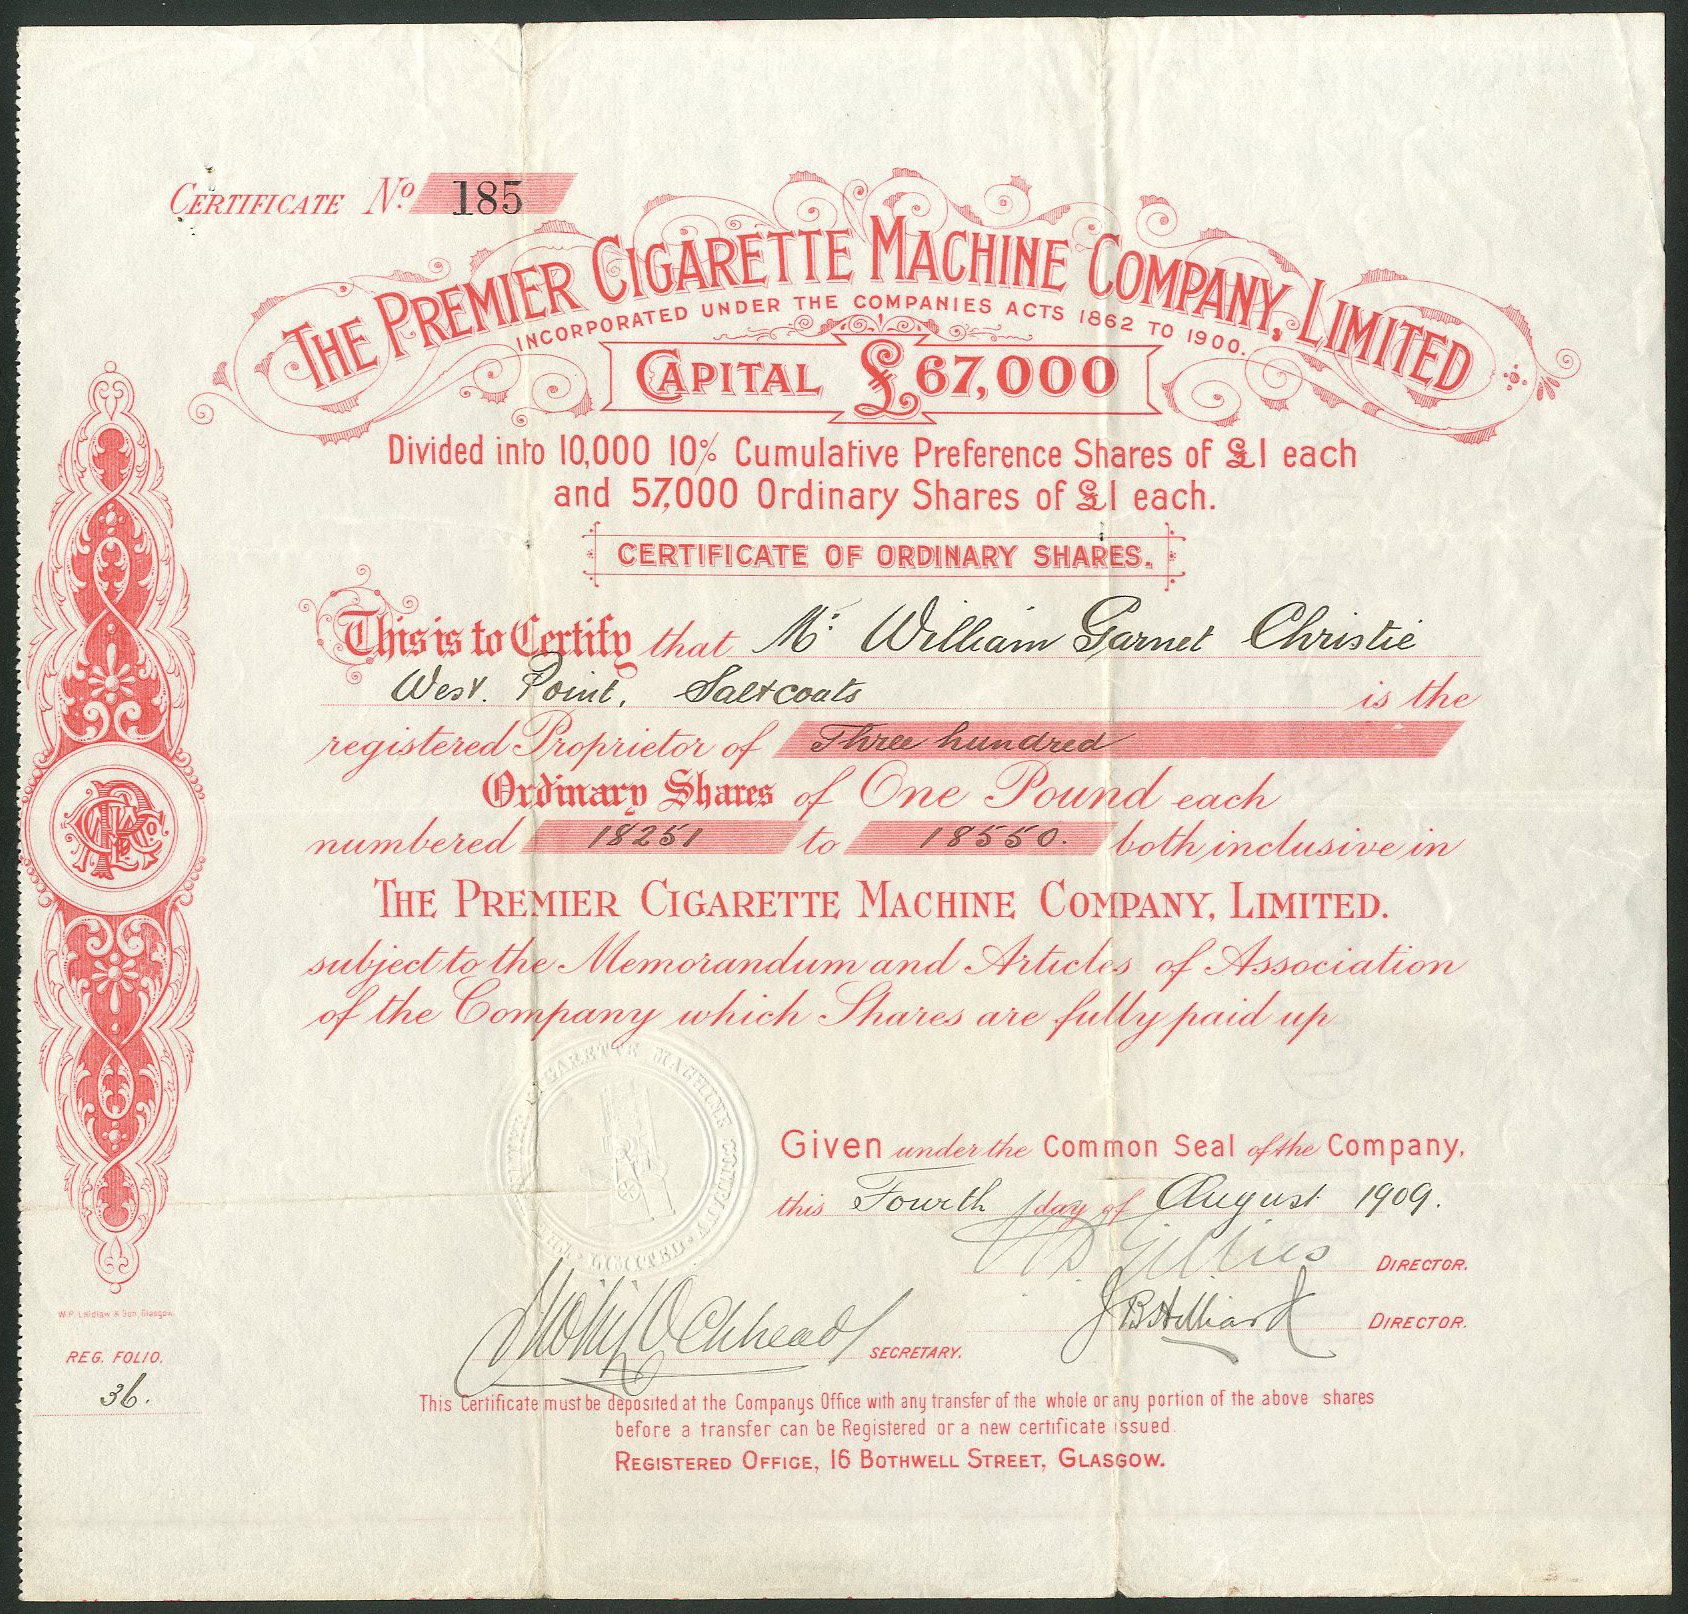 CERTIFICATE No. 185
THE PREMIER CIGARETTE MACHINE COMPANY, LIMITED
INCORPORATED UNDER THE COMPANIES ACTS 1862 TO 1900.
CAPITAL £67,000
Divided into 10,000 10% Cumulative Preference Shares of £1 each
and 57,000 Ordinary Shares of £1 each.
CERTIFICATE OF ORDINARY SHARES.
This is to Certify that Mr. William Garnet Christie
West Point, Saltcoats is the
registered Proprietor of Three hundred
Ordinary Shares of One Pound each
numbered 18251 to 18550. both inclusive in
THE PREMIER CIGARETTE MACHINE COMPANY, LIMITED.
subject to the Memorandum and Articles of Association
of the Company which Shares are fully paid up
THE PREMIER CIGARETTE MACHINE COMPANY LIMITED
Given under the Common Seal of the Company,
this Fourth day of August 1909.
Gillies DIRECTOR.
J B Hilliard DIRECTOR.
SECRETARY.
W.P. Laidlaw & Son, Glasgow
REG. FOLIO.
36.
This Certificate must be deposited at the Companys Office with any transfer of the whole or any portion of the above shares
before a transfer can be Registered or a new certificate issued.
REGISTERED OFFICE, 16 BOTHWELL STREET, GLASGOW.